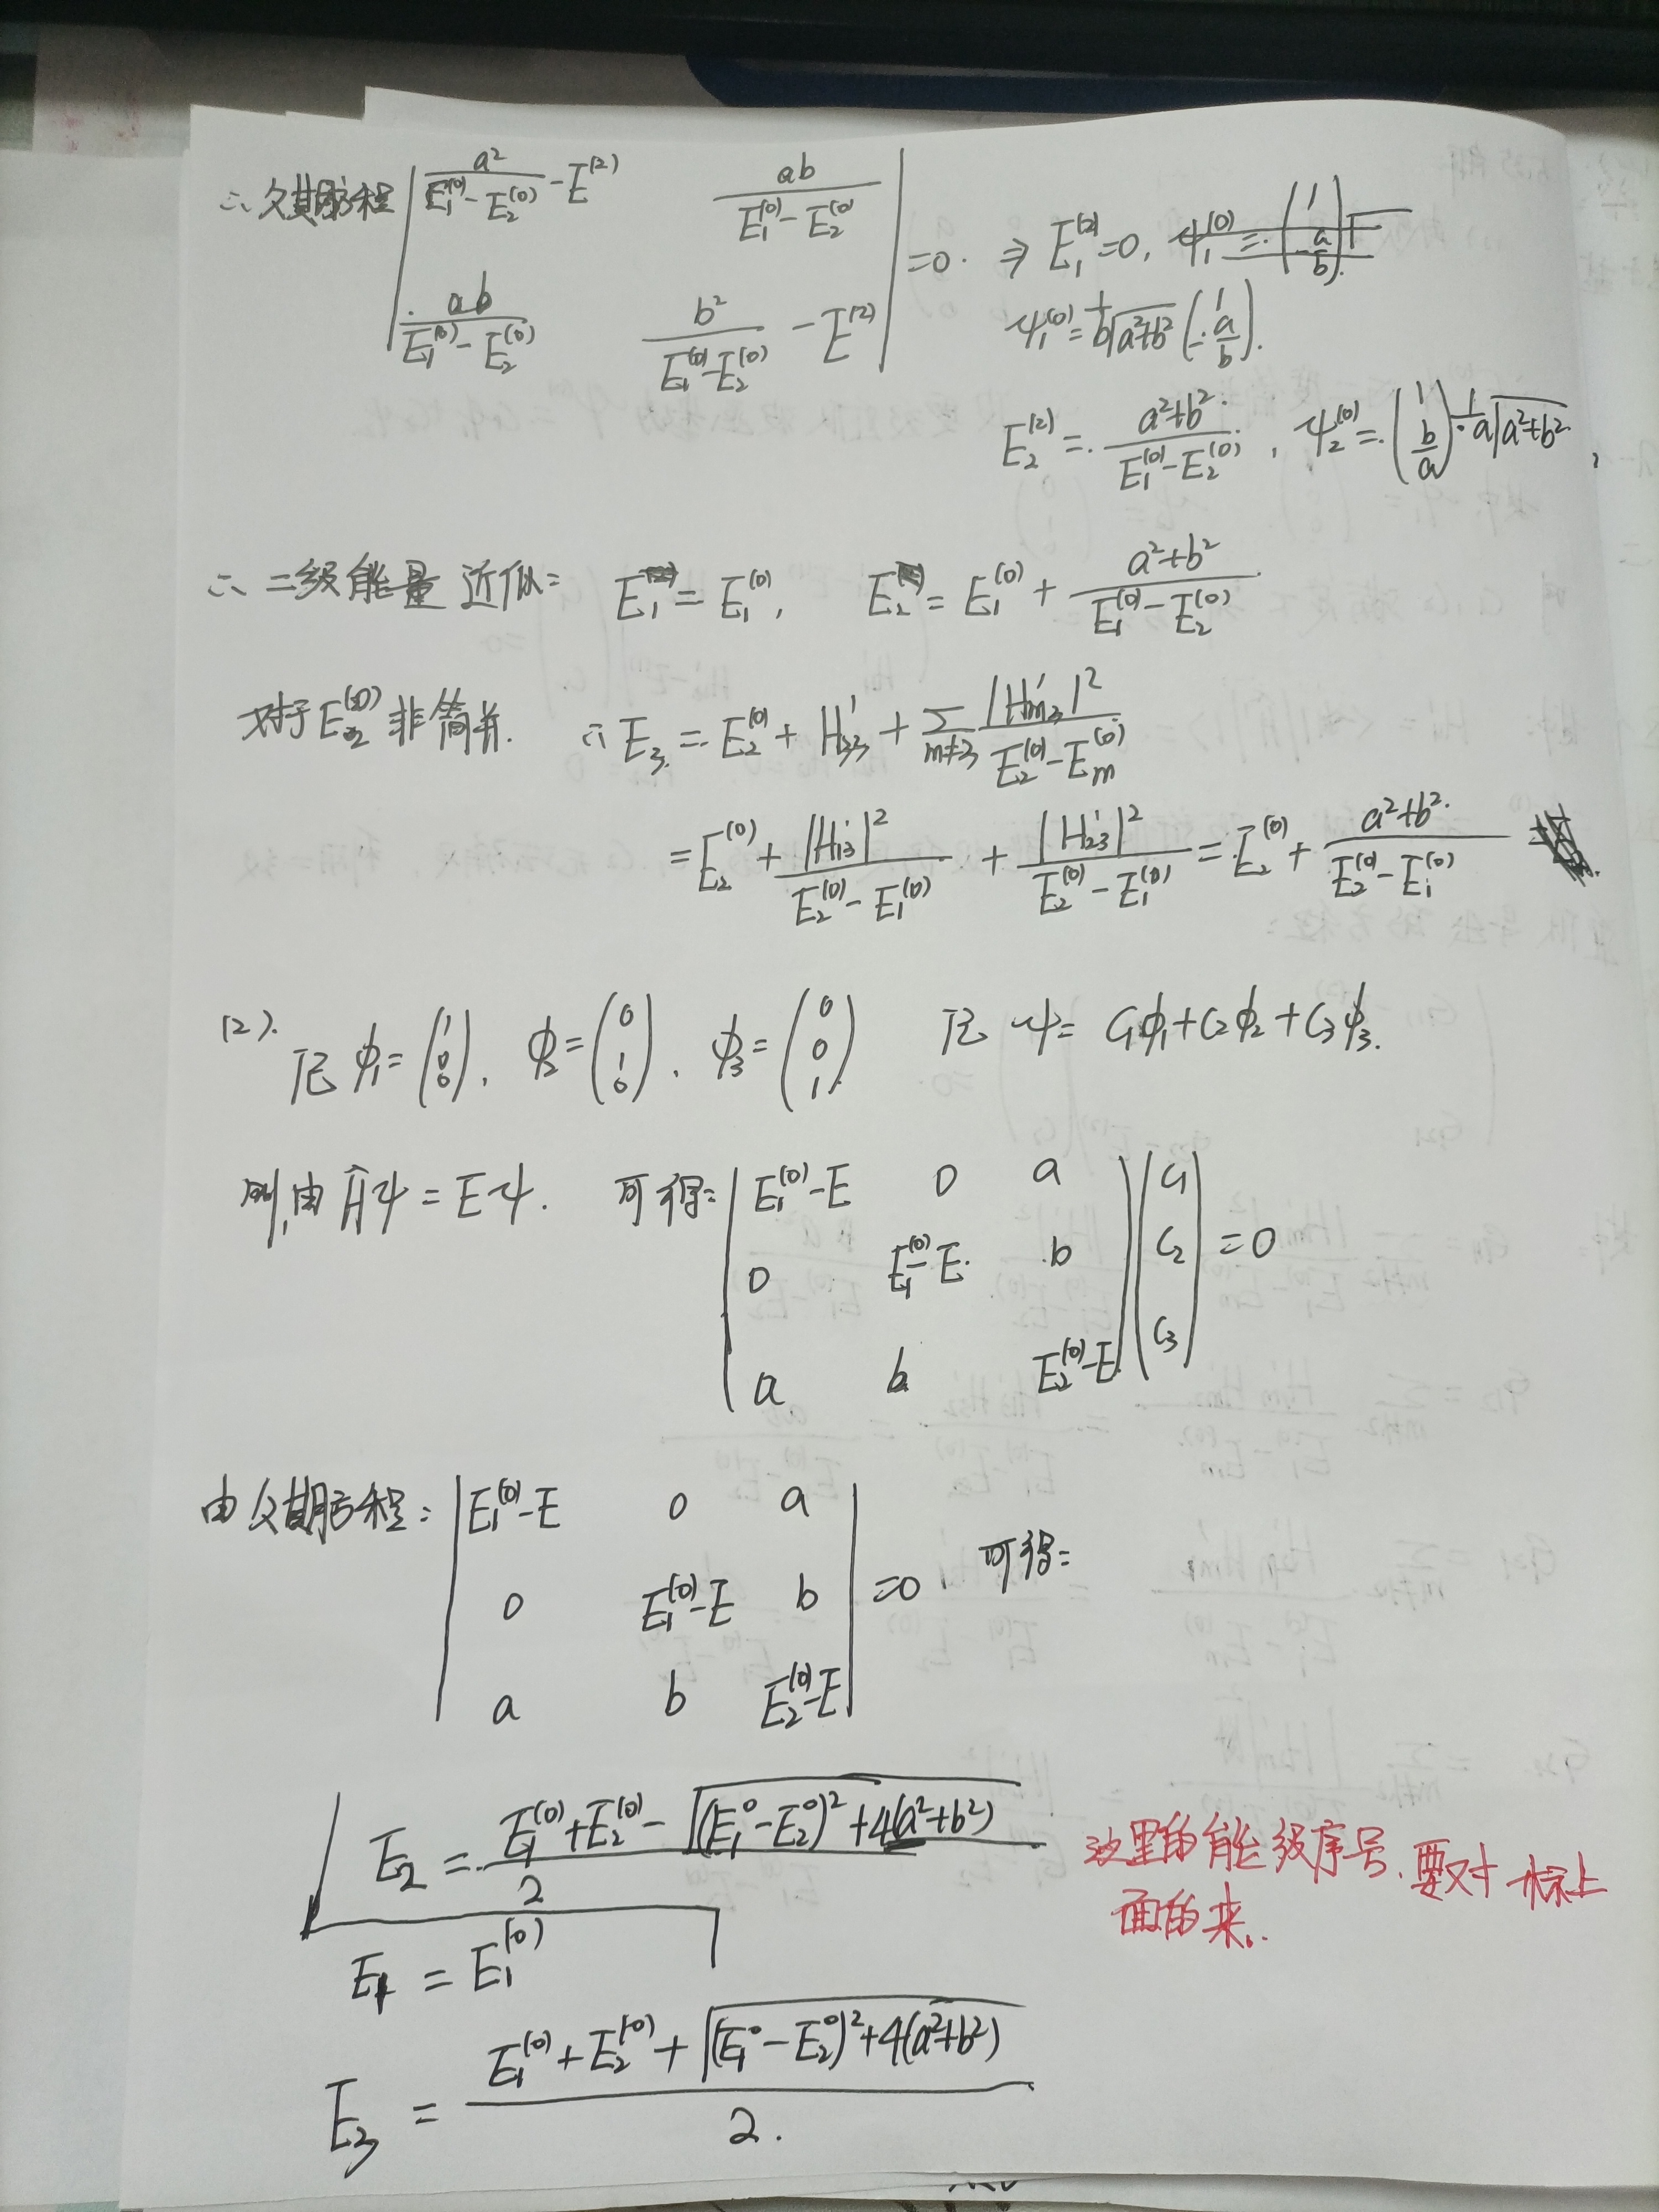 ∴ 久期方程 | a²/(E₁⁽⁰⁾-E₂⁽⁰⁾) - E⁽²⁾    ab/(E₁⁽⁰⁾-E₂⁽⁰⁾) | = 0. ⇒ E₁⁽²⁾=0,
| ab/(E₁⁽⁰⁾-E₂⁽⁰⁾)    b²/(E₁⁽⁰⁾-E₂⁽⁰⁾) - E⁽²⁾ |
ψ₁⁽⁰⁾ = 1/b √(a²+b²) (1, -a/b).
E₂⁽²⁾ = (a²+b²)/(E₁⁽⁰⁾-E₂⁽⁰⁾), ψ₂⁽⁰⁾ = (1, b/a) 1/a √(a²+b²),
∴ 二级能量近似: E₁ = E₁⁽⁰⁾, E₂ = E₁⁽⁰⁾ + (a²+b²)/(E₁⁽⁰⁾-E₂⁽⁰⁾)
对于E₂⁽⁰⁾非简并. ∴ E₃ = E₂⁽⁰⁾ + H'₃₃ + Σ_{m≠3} |H'm₃|²/(E₂⁽⁰⁾-Em⁽⁰⁾)
= E₂⁽⁰⁾ + |H'₁₃|²/(E₂⁽⁰⁾-E₁⁽⁰⁾) + |H'₂₃|²/(E₂⁽⁰⁾-E₁⁽⁰⁾) = E₂⁽⁰⁾ + (a²+b²)/(E₂⁽⁰⁾-E₁⁽⁰⁾)
(2). 记 ϕ₁ = (1 0 0), ϕ₂ = (0 1 0), ϕ₃ = (0 0 1) 记 ψ = C₁ϕ₁+C₂ϕ₂+C₃ϕ₃.
则,由 Ĥψ = Eψ. 可得: | E₁⁽⁰⁾-E  0  a | | C₁ |
| 0  E₁⁽⁰⁾-E  b | | C₂ | = 0
| a  b  E₂⁽⁰⁾-E | | C₃ |
由久期方程: | E₁⁽⁰⁾-E  0  a |
| 0  E₁⁽⁰⁾-E  b | = 0, 可得:
| a  b  E₂⁽⁰⁾-E |
E₂ = (E₁⁽⁰⁾+E₂⁽⁰⁾ - √((E₁⁰-E₂⁰)²+4(a²+b²)))/2
这里的能级序号,要对标上
面的来.
E₁ = E₁⁽⁰⁾
E₃ = (E₁⁽⁰⁾+E₂⁽⁰⁾ + √((E₁⁰-E₂⁰)²+4(a²+b²)))/2.